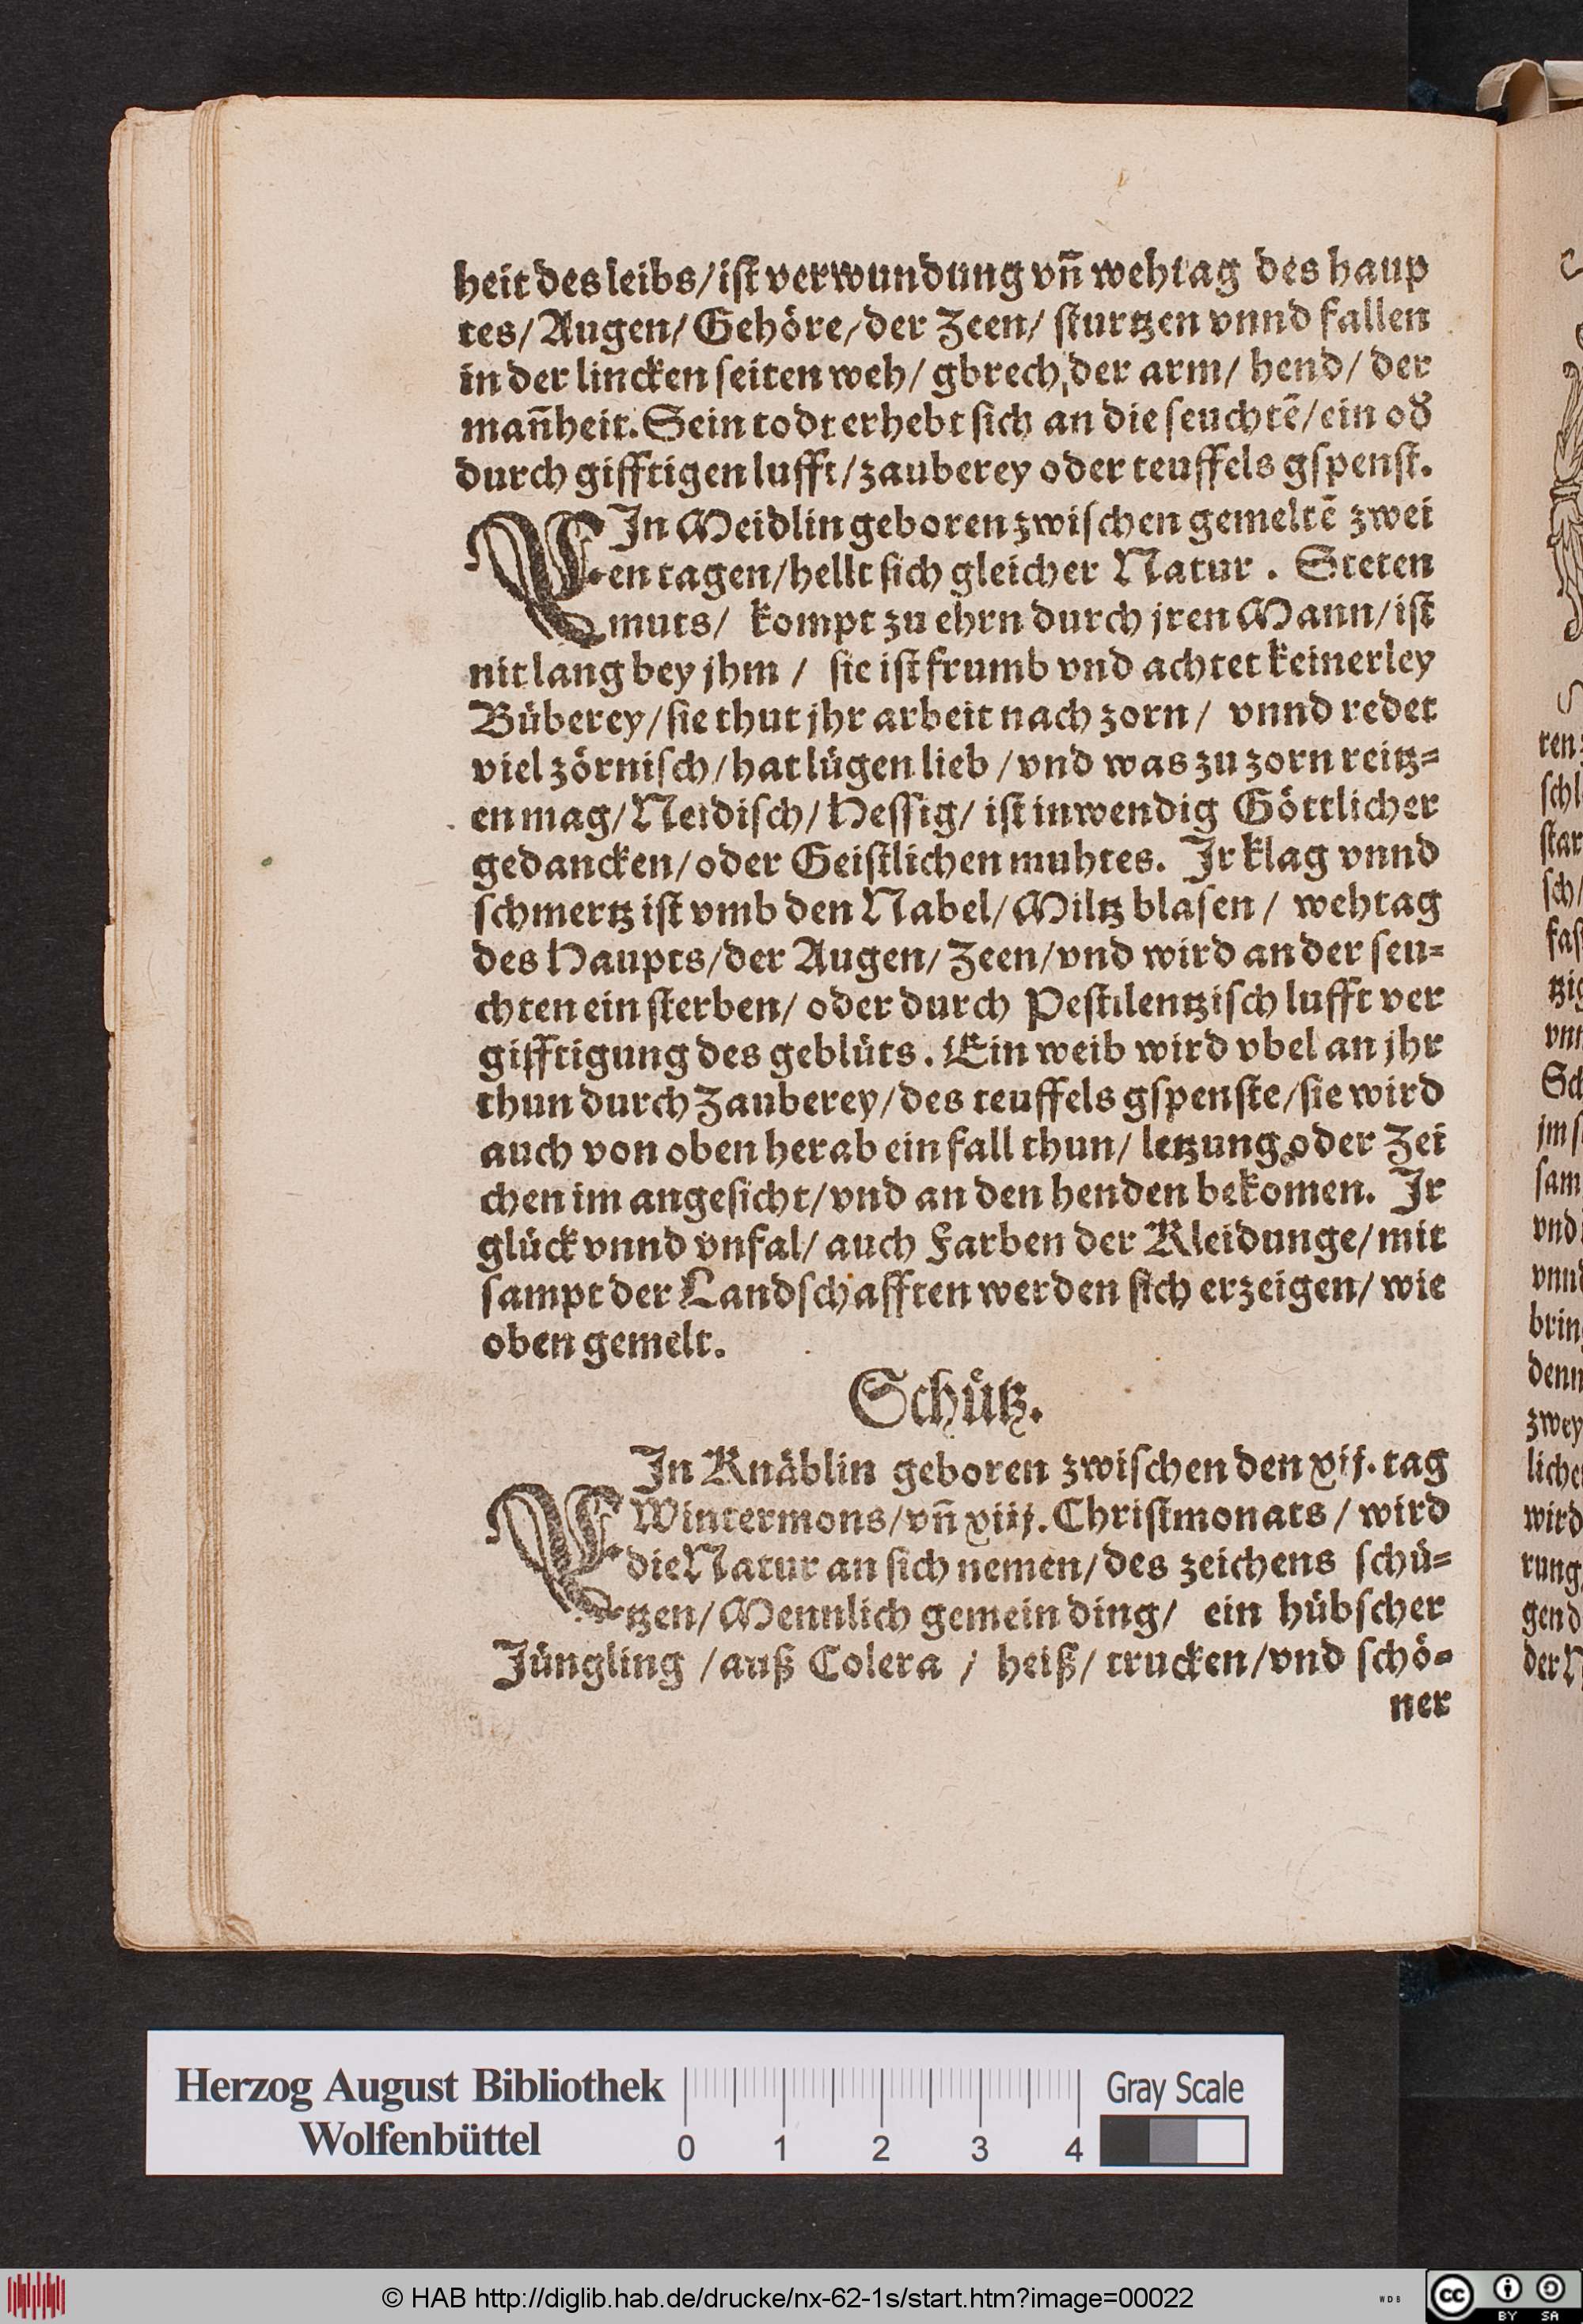 heit des leibs/ist verwundung vn̄ wehtag des haup
tes/Augen/Gehöre/der Zeen/ sturtzen vnnd fallen
in der lincken seiten weh/ gbrech der arm/ hend/ der
man̄heit. Sein todt erhebt sich an die seuchtē/ein od̕
durch gifftigen lufft/zauberey oder teuffels gspenst.
EIn Meidlin geboren zwischen gemeltē zwei
en tagen/hellt sich gleicher Natur. Steten
muts/ kompt zu ehrn durch jren Mann/ist
nit lang bey jhm / sie ist frumb vnd achtet keinerley
Büberey/sie thut jhr arbeit nach zorn/ vnnd redet
viel zörnisch/hat lügen lieb/vnd was zu zorn reitz=
en mag/Neidisch/Hessig/ ist inwendig Göttlicher
gedancken/oder Geistlichen muhtes. Ir klag vnnd
schmertz ist vmb den Nabel/Miltz blasen/ wehtag
des Haupts/der Augen/Zeen/vnd wird an der seu=
chten ein sterben/ oder durch Pestilentzisch lufft ver
gifftigung des geblüts. Ein weib wird vbel an jhr
thun durch Zauberey/des teuffels gspenste/sie wird
auch von oben herab ein fall thun/ letzung oder Zei
chen im angesicht/vnd an den henden bekomen. Ir
glück vnnd vnfal/auch Farben der Kleidunge/mit
sampt der Landschafften werden sich erzeigen/wie
oben gemelt.
Schütz.
EIn Knäblin geboren zwischen den xij. tag
Wintermons/vn̄ xiij. Christmonats/wird
die Natur an sich nemen/des zeichens schü=
tzen/Mennlich gemein ding/ ein hübscher
Jüngling /auß Colera / heiß/ trucken/vnd schö=
ner
ren
schl
star
sch/
fas
tzig
vnn
Sch
jm s
sam
vnd
vnnd
bring
denn
zwey
liche
wird
rung
gend
der N
Herzog August Bibliothek
Wolfenbüttel
0 1 2 3 4
Gray Scale
© HAB http://diglib.hab.de/drucke/nx-62-1s/start.htm?image=00022
WDB
cc BY SA